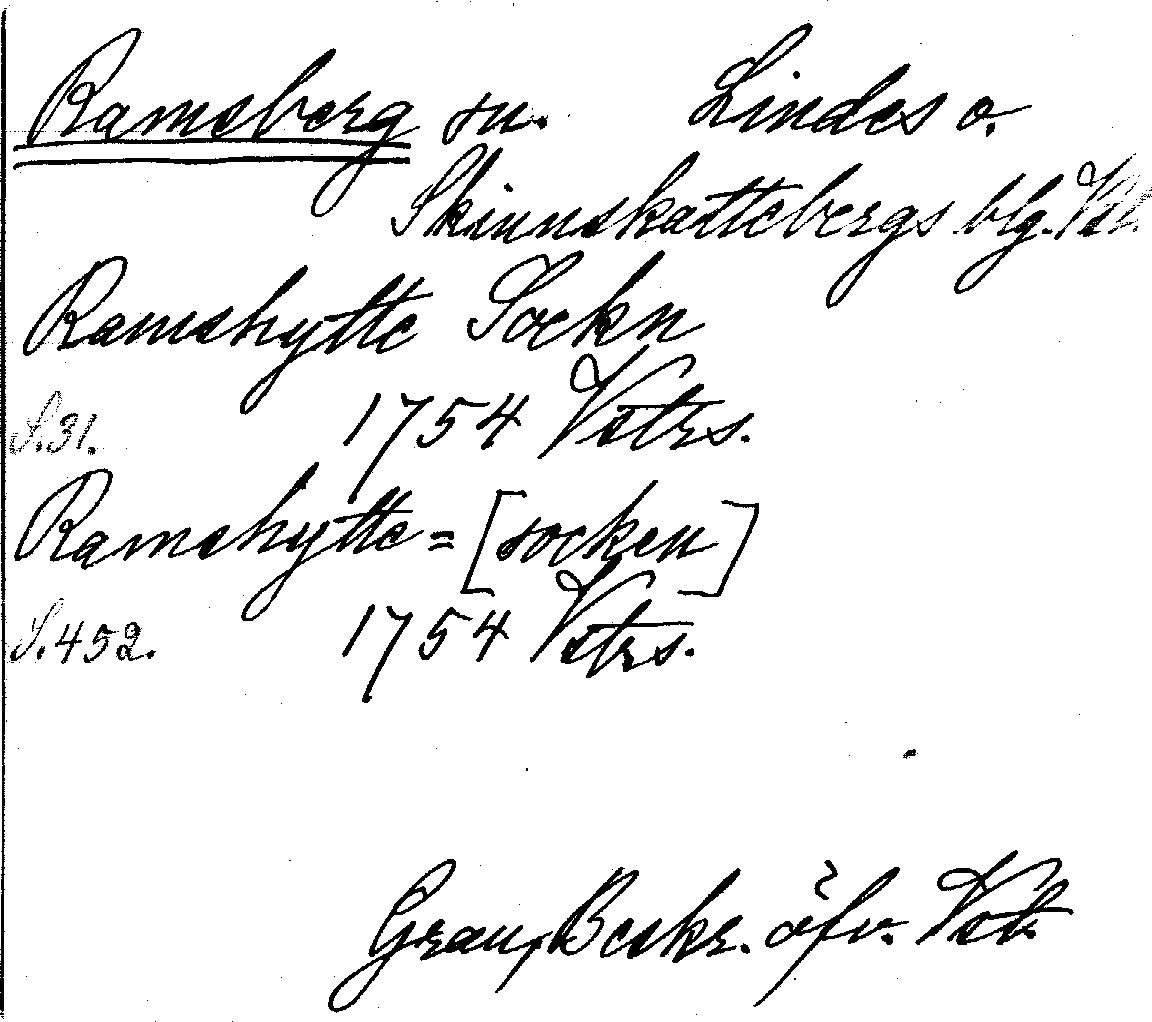 Ramsberg sn. Lindes o.
Skinnskattebergs blg. Vstl.
Ramshytte Sockn
S. 31. 1754 Vstrs.
Ramshytte = [socken]
S. 452. 1754 Vstrs.
Grau, Beskr. öfv. Vstl.